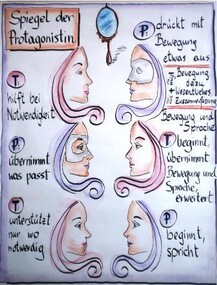 Spiegel der
Protagonistin
P. drückt mit
Bewegung
etwas aus
Bewegung
dazu
Wesentliches
Zusammenfassung
T
hilft bei
Notwendigkeit
Bewegung und
Sprache
P.
übernimmt
was passt
T beginnt,
übernimmt
Bewegung und
Sprache,
erweitert
T
unterstützt
nur wo
notwendig
P.
beginnt,
spricht